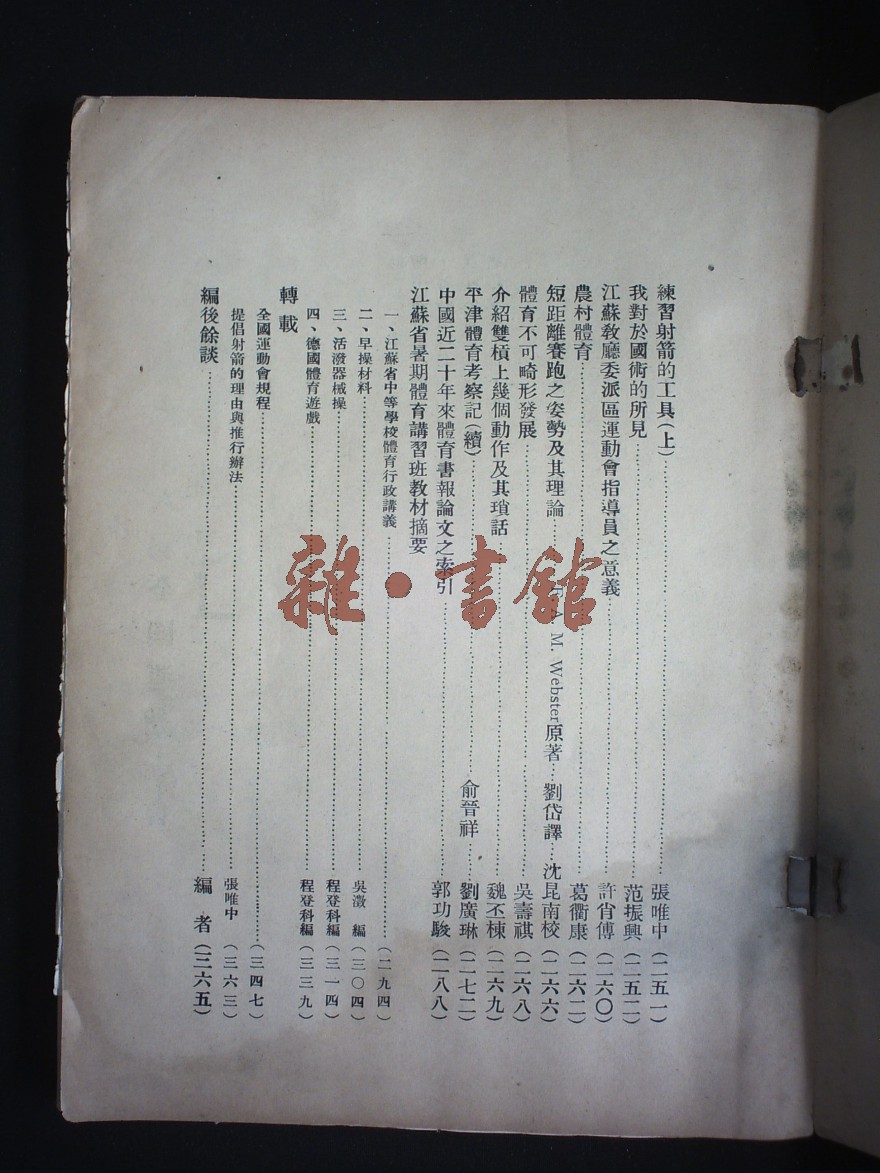 練習射箭的工具(上)……張唯中(二五一)
我對於國術的所見……范振興(二五二)
江蘇教廳委派區運動會指導員之意義……許肖傅(二六〇)
農村體育……葛衢康(二六二)
短距離賽跑之姿勢及其理論……A. M. Webster原著…劉岱譯…沈昆南校(二六六)
體育不可畸形發展……吳壽祺(二六八)
介紹雙槓上幾個動作及其瑣話……魏丕棟(二六九)
平津體育考察記(續)……俞晉祥……劉廣琳(二七二)
中國近二十年來體育書報論文之索引……郭功駿(二八八)
江蘇省暑期體育講習班教材摘要
一、江蘇省中等學校體育行政講義……(二九四)
二、早操材料……吳澂 編(三〇四)
三、活潑器械操……程登科編(三一四)
四、德國體育遊戲……程登科編(三三九)
轉載
全國運動會規程……(三四七)
提倡射箭的理由與推行辦法……張唯中(三六三)
編後餘談……編者(三六五)
雜·書館